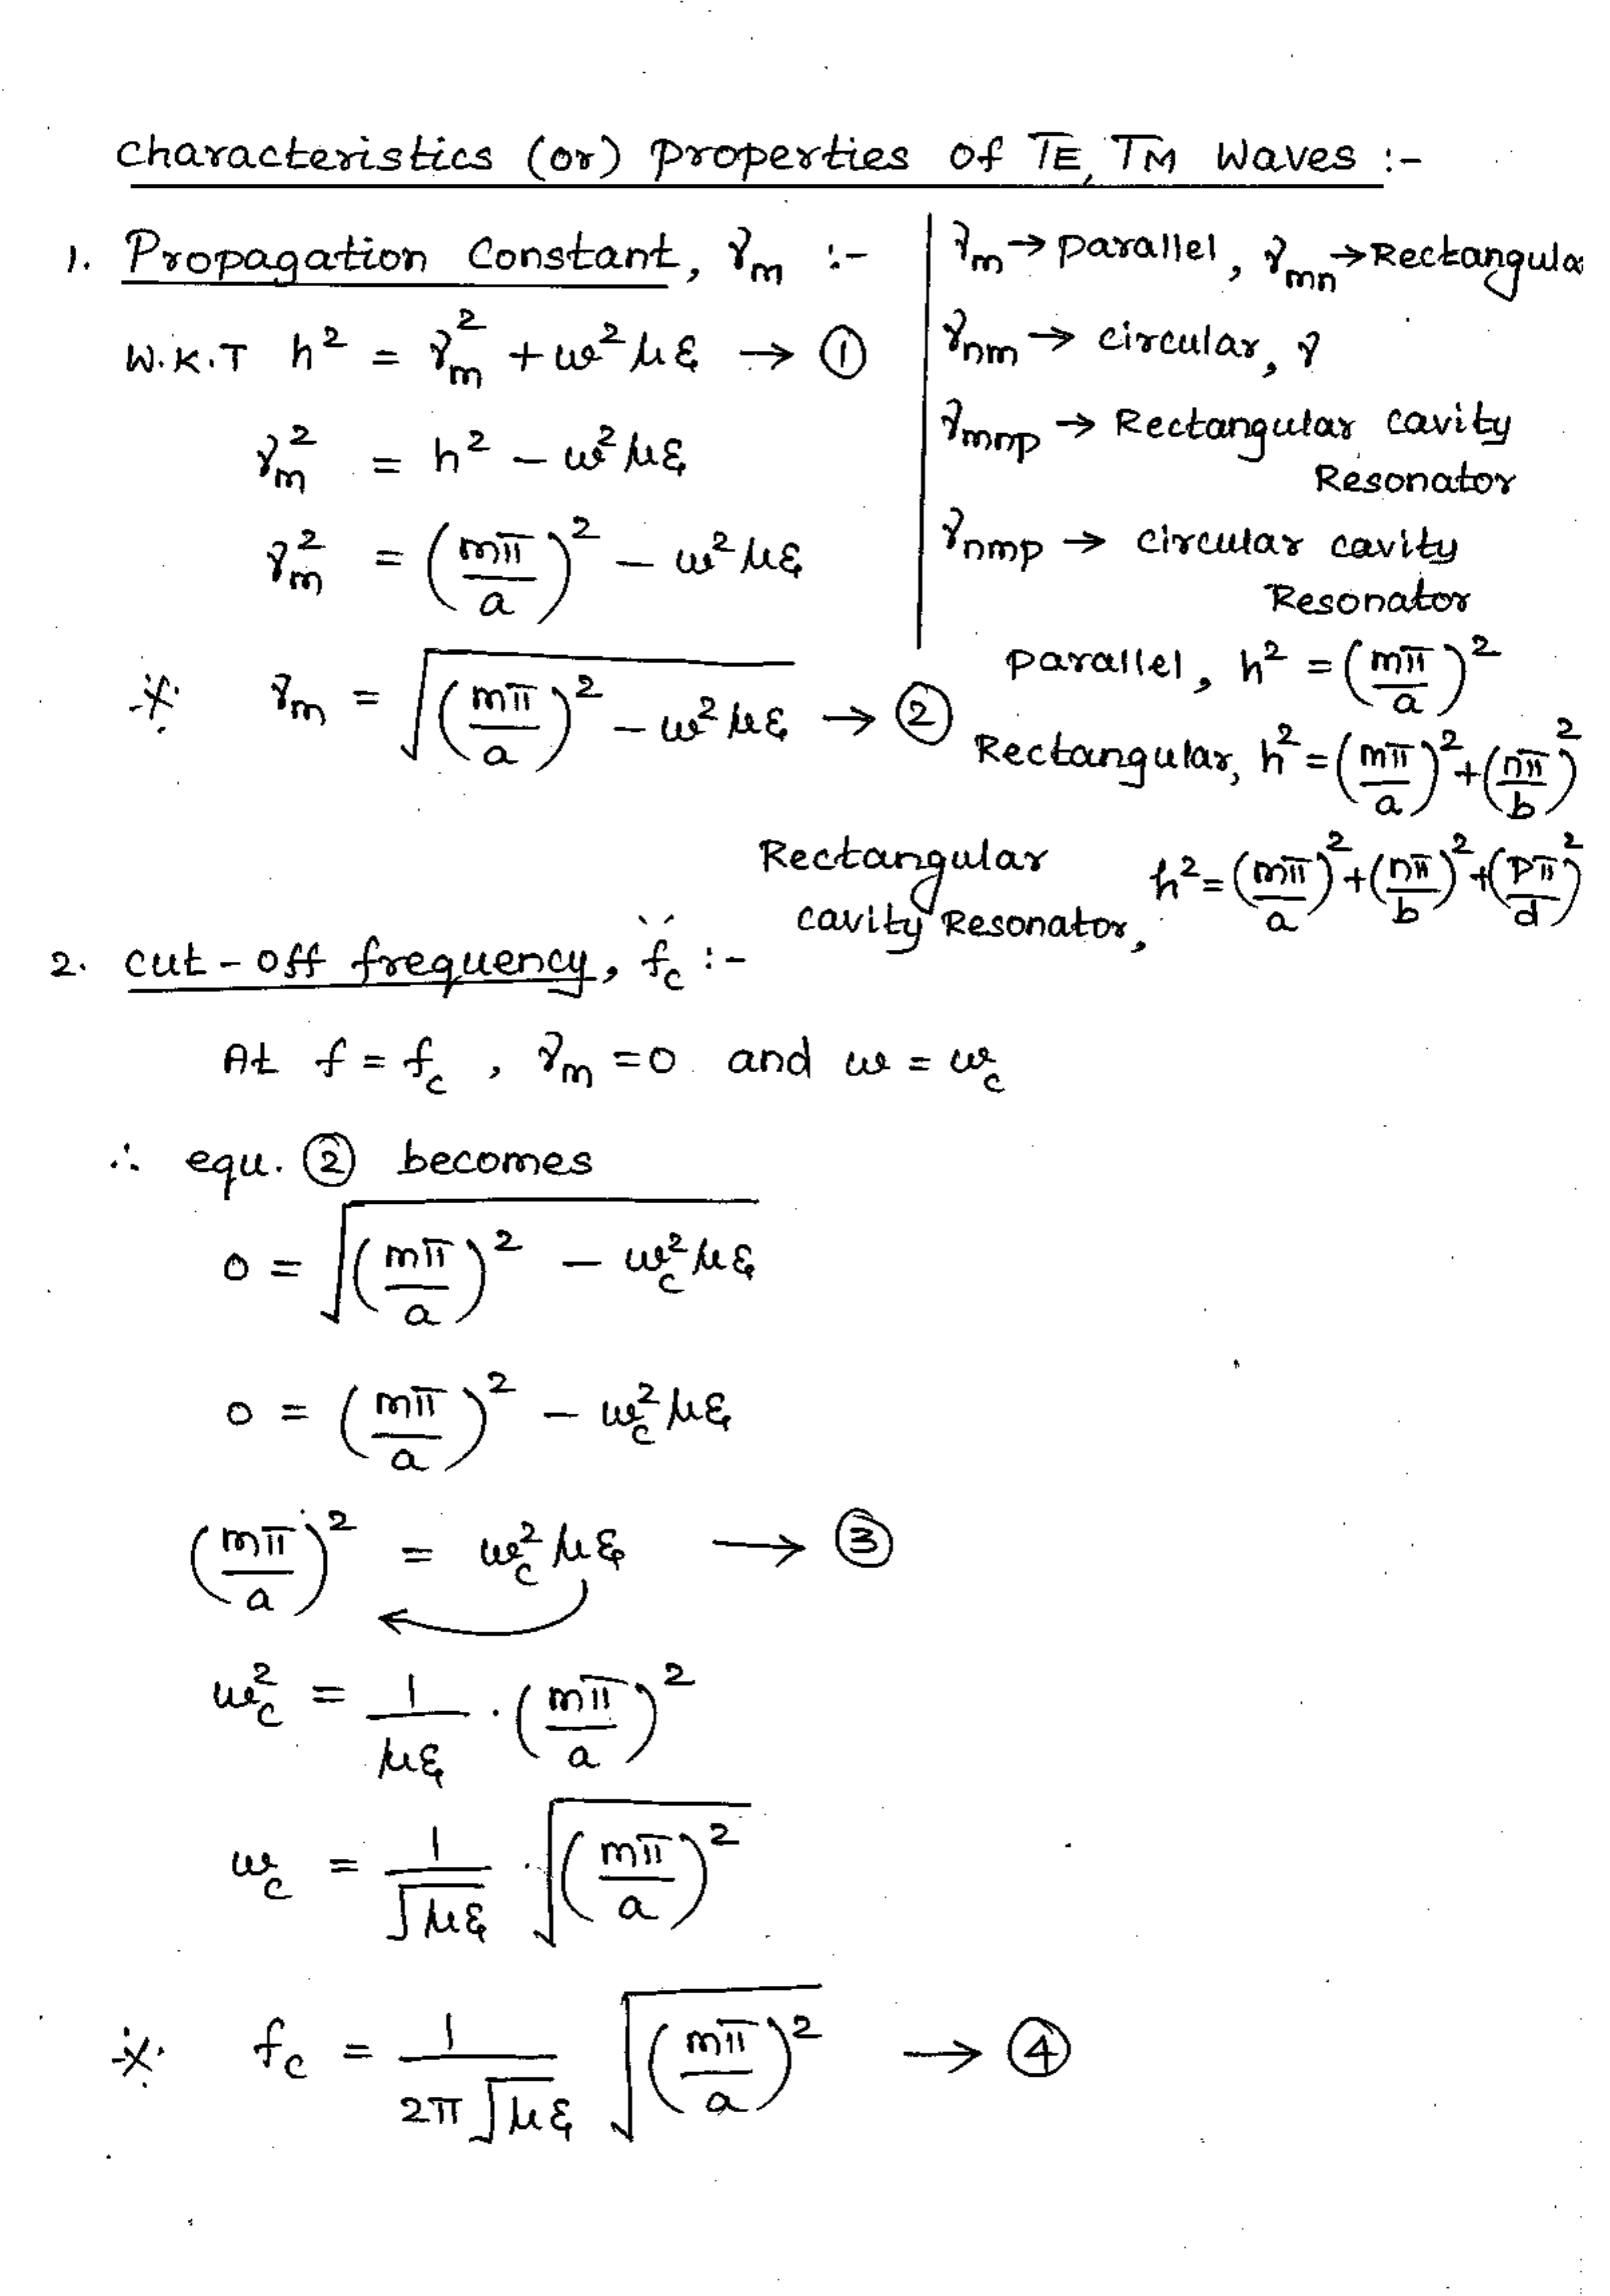 Characteristics (or) Properties of TE, TM Waves :-
1. Propagation Constant, γm :-
W.K.T h² = γm² + ω²με → ①
γm² = h² - ω²με
γm² = (mπ/a)² - ω²με
※ γm = √((mπ/a)² - ω²με) → ②
γm → parallel, γmn → Rectangula
γnm → circular, γ
γmnp → Rectangular cavity
Resonator
γnmp → circular cavity
Resonator
parallel, h² = (mπ/a)²
Rectangular, h² = (mπ/a)² + (nπ/b)²
Rectangular
cavity Resonator, h² = (mπ/a)² + (nπ/b)² + (pπ/d)²
2. cut-off frequency, fc :-
At f = fc, γm = 0 and ω = ωc
∴ equ. ② becomes
0 = √((mπ/a)² - ωc²με)
0 = (mπ/a)² - ωc²με
(mπ/a)² = ωc²με → ③
ωc² = 1/με · (mπ/a)²
ωc = 1/√με · √((mπ/a)²)
※ fc = 1/2π√με √((mπ/a)²) → ④